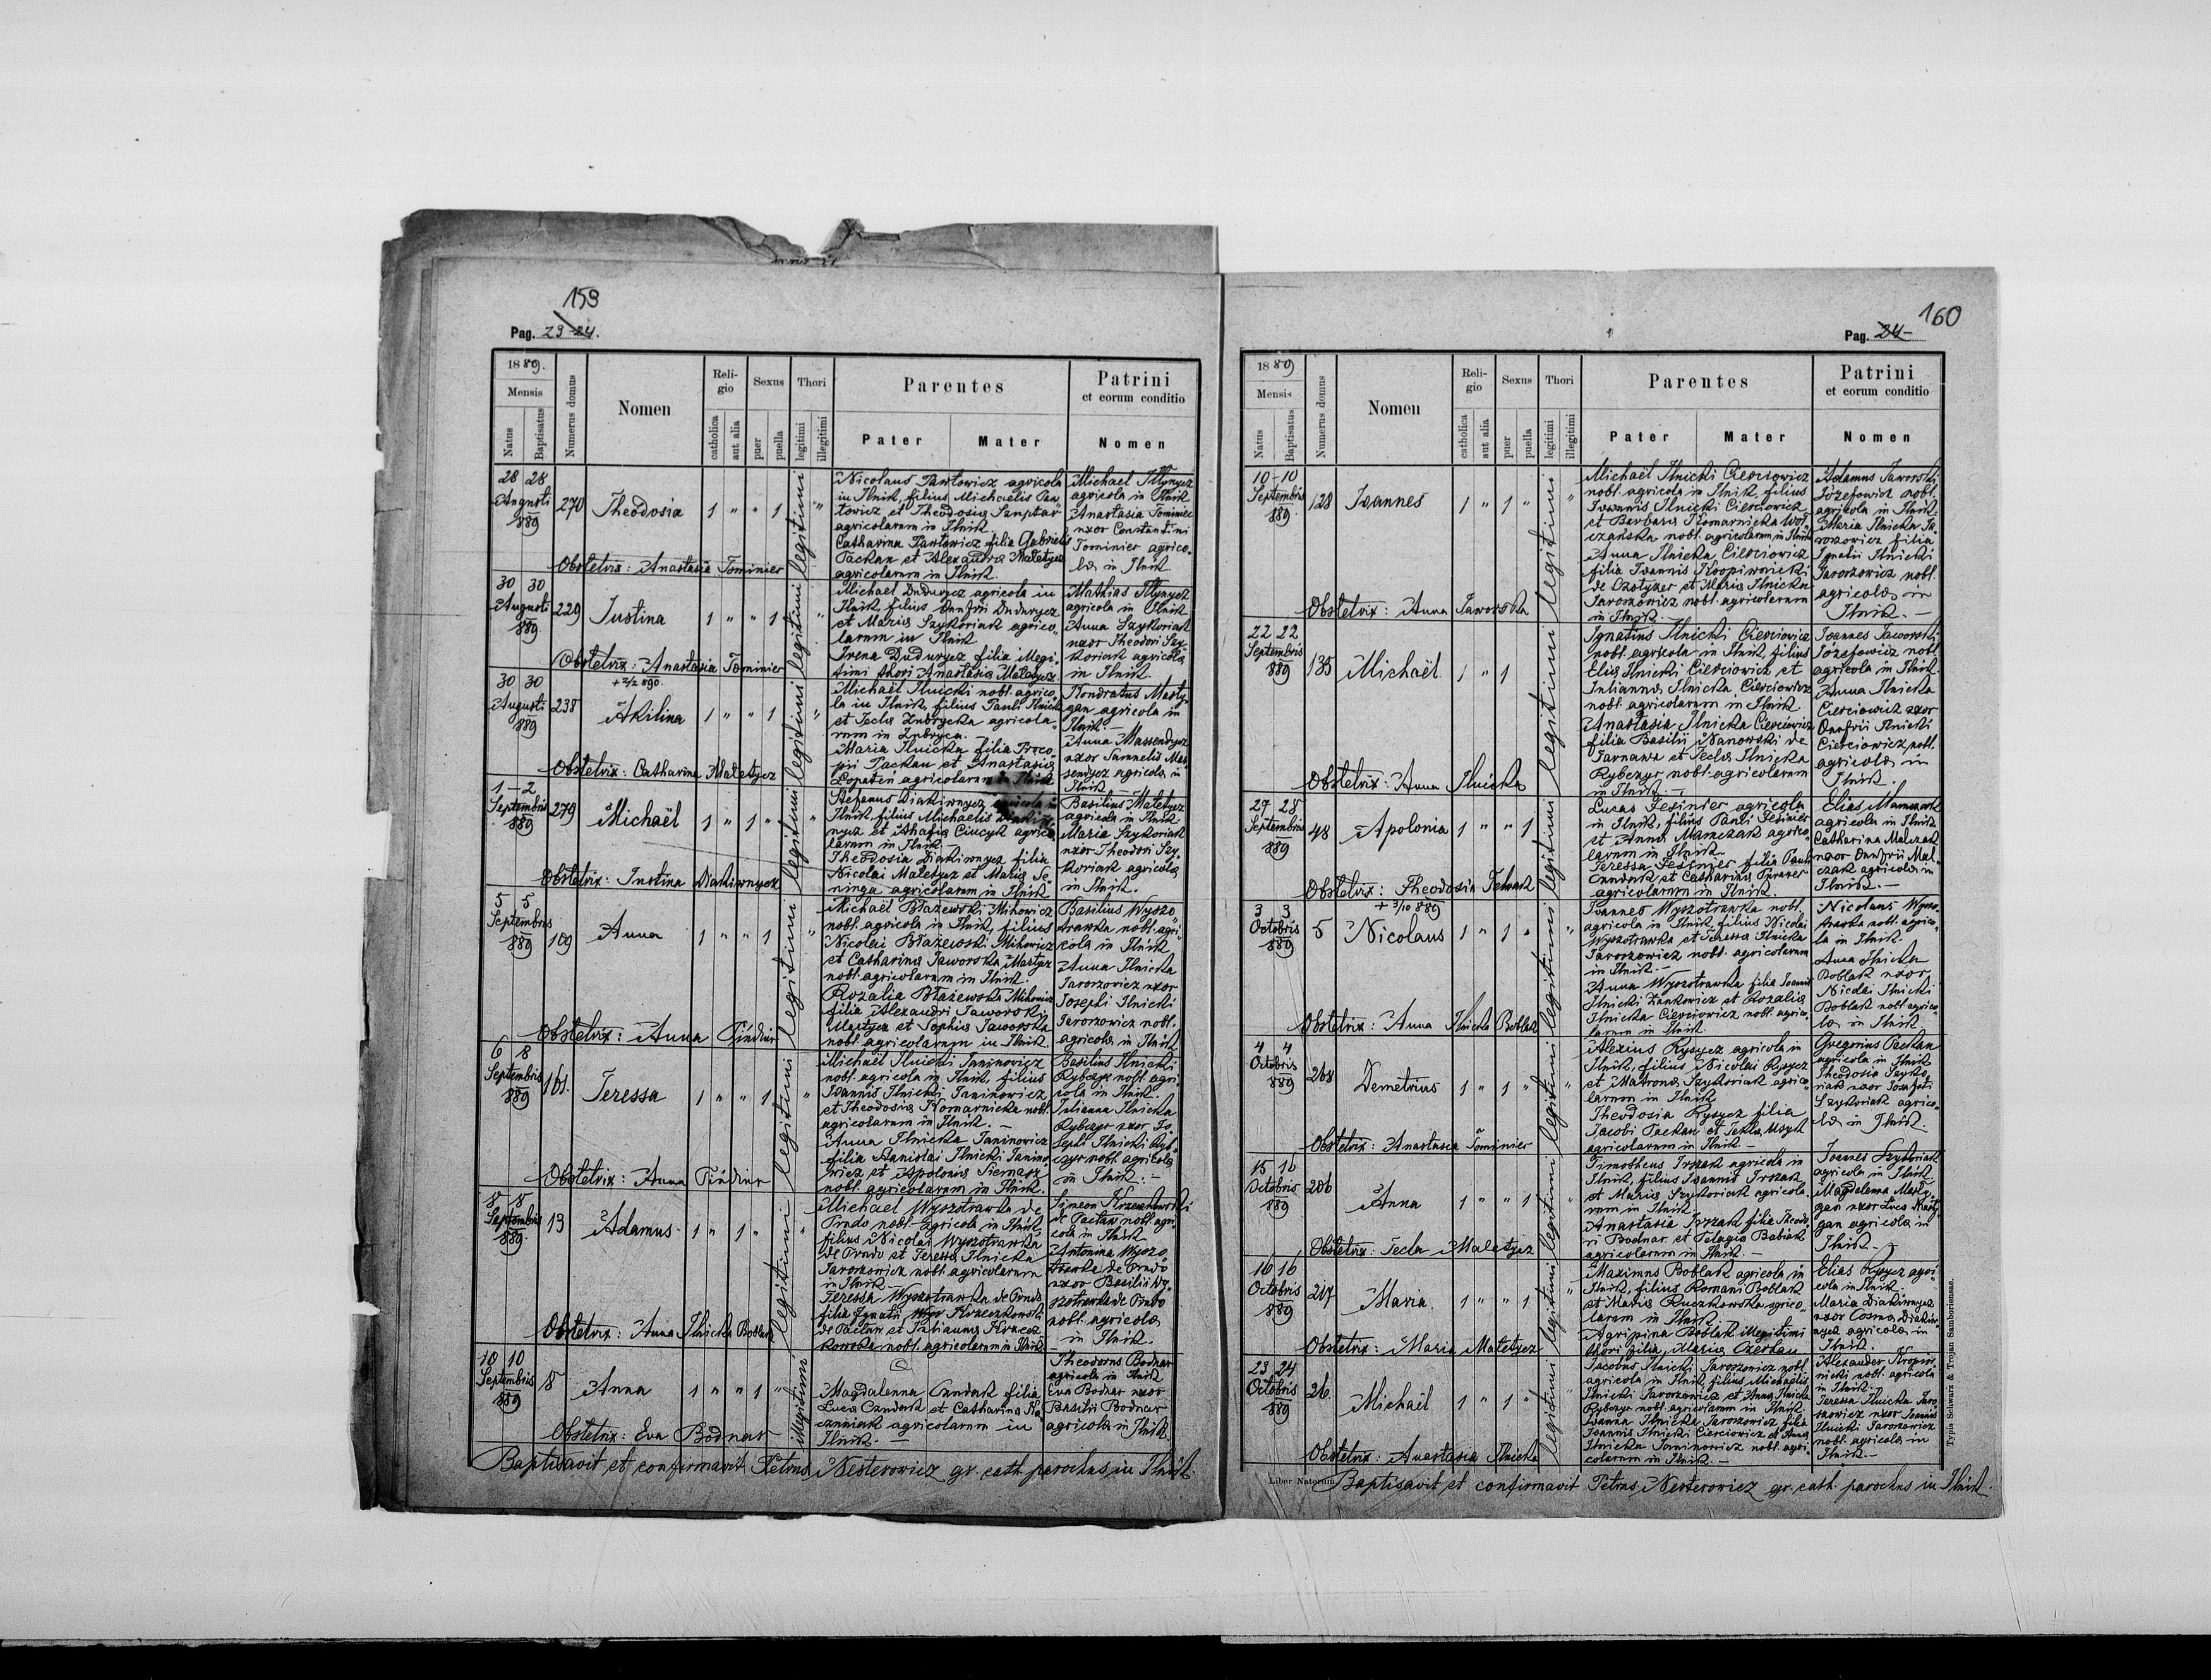 159
Pag. 23-24.
1889.
Mensis
Natus
Baptisatus
Numerus domus
Nomen
Religio
catholica
aut alia
Sexus
puer
puella
Thori
legitimi
illegitimi
Parentes
Pater Mater
Patrini
et eorum conditio
Nomen
28 28
Augusti
889
270
Theodosia
1 " " 1 "
legitimi
Nicolaus Pawłowicz agricola
in Ilnik, filius Michaelis Paw
łowicz et Theodosia Szuptar
agricolarum in Ilnik.
Catharina Pawłowicz filia Gabrielis
Packan et Alexandra Małetycz
agricolarum in Ilnik.
Michael Młynycz
agricola in Ilnik
Anastasia Tominiec
uxor Constantini
Tominier agrico,
la in Ilnik.
Obstetrix: Anastasia Tominier
30 30
Augusti
889
229
Justina
1 " " 1 "
legitimi
Michael Dudurycz agricola in
Ilnik, filius Onufrii Dudurycz
et Maria Szykoriak agrico,
larum in Ilnik
Irena Dudurycz filia illegi,
timi thori Anastasia Małetycz.
Mathias Młynycz
agricola in Ilnik
Anna Szykoriak
uxor Theodori Szy,
koriak agricola
in Ilnik.
Obstetrix: Anastasia Tominier
+ 2/2 890.
30 30
Augusti
889
238
Akilina
1 " " 1 "
legitimi
Michaël Ilnicki nobl. agrico,
la in Ilnik, filius Pauli Ilnicki
et Tecla Zubrycka agricola,
rum in Zubryca.
Maria Ilnicka filia Proco,
pii Packan et Anastasia
Łopatin agricolarum in Ilnik
Kondratus Masty,
gan agricola in
Ilnik.
Anna Massendycz
uxor Samuelis Mas
sendycz agricola in
Ilnik
Obstetrix: Catharina Małetycz
1 - 2
Septembris
889
279
Michaël
1 " 1 " "
legitimi
Stefanus Diakiwnycz agricola in
Ilnik, filius Michaelis
nycz et Ahafia Ciucyk agrico,
larum in Ilnik.
Theodosia Diakiwnycz filia
Nicolai Małetycz et Maria Je,
ninga agricolarum in Ilnik.
Basilius Małetycz
agricola in Ilnik
Maria Szykoriak
uxor Theodori Szy,
koriak agricola
in Ilnik.
Obstetrix: Justina Diakiwnycz
5 5
Septembris
889
109
Anna
1 " " 1 "
legitimi
Michaël Błażewski Mihowicz
nobl. agricola in Ilnik, filius
Nicolai Błażewski Mihowicz
et Catharina Jaworska Martycz
nobl. agricolarum in Ilnik.
Rozalia Błażewska Mihowicz
filia Alexandri Jaworski
Martycz et Sophia Jaworska
nobl. agricolarum in Ilnik.
Basilius Wyszo,
trawka nobl. agri,
cola in Ilnik
Anna Ilnicka
Jaroszowicz uxor
Josephi Ilnicki
Jaroszowicz nobl.
agricola in Ilnik
Obstetrix: Anna Pindiur
6 8
Septembris
889
161.
Teressa
1 " " 1 "
legitimi
Michaël Ilnicki Janinowicz
nobl. agricola in Ilnik, filius
Ioannis Ilnicki Janinowicz
et Theodosia Komarnicka nobl.
agricolarum in Ilnik.-
Anna Ilnicka Janinowicz
filia Stanislai Ilnicki Janino,
wicz et Apolonia Siemasz
nobl. agricolarum in Ilnik.
Basilius Ilnicki
Rybczyr nobl. agri,
cola in Ilnik.
Julianna Ilnicka
Rybczyr uxor Jo,
sephi Ilnicki Ryb,
czyr nobl. agricola
in Ilnik.-
Obstetrix: Anna Pindiur
8 8
Septembris
889.
13
Adamus
1 " 1 " "
legitimi
Michael Wyszotrawka de
Prudo nobl. agricola in Ilnik
filius Nicolai Wyszotrawka
de Prudo et Teressa Ilnicka
Jaroszowicz nobl. agricolarum
in Ilnik.-
Teressa Wyszotrawka de Prudo
filia Ignatii Krzeczkowski
de Pacław et Julianna Krzecz
kowska nobl. agricolarum in Ilnik
Simeon Krzeczkowski
de Pacław nobl. agri,
cola in Ilnik.
Antonina Wyszo,
trawka de Prudo
uxor Basilii Wy,
szotrawka de Prudo
nobl. agricola
in Ilnik.
Obstetrix: Anna Ilnicka Boblak
10 10
Septembris
889
8
Anna
1 " " 1 "
illegitimi
Magdalenna Cundak filia
Luca Cundak et Catharina Ka,
czmiak agricolarum in
Ilnik.-
Theodorus Bodnar
agricola in Ilnik
Eva Bodnar uxor
Basilii Bodnar
agricola in Ilnik
Obstetrix: Eva Bodnar
Baptisavit et confirmavit Petrus Nesterowicz gr. cath. parochus in Ilnik.
160
Pag. 24-
1889
Mensis
Natus
Baptisatus
Numerus domus
Nomen
Religio
catholica
aut alia
Sexus
puer
puella
Thori
legitimi
illegitimi
Parentes
Pater Mater
Patrini
et eorum conditio
Nomen
10 10
Septembris
889
128
Ioannes
1 " 1 " "
legitimi
Michaël Ilnicki Cierciowicz
nobl. agricola in Ilnik, filius
Ioannis Ilnicki Cierciowicz
et Barbara Komarnicka Woł,
czańska nobl. agricolarum in Ilnik
Anna Ilnicka Cierciowicz
filia Ioannis Kropiwnicki
de Ozotyzer et Maria Ilnicka
Jaroszowicz nobl. agricolarum
in Ilnik.-
Adamus Jaworski
Józefowicz nobl.
agricola in Ilnik.
Maria Ilnicka Ja,
roszowicz filia
Ignatii Ilnicki
Jaroszowicz nobl.
agricola in
Ilnik.-
Obstetrix: Anna Jaworska
22 22
Septembris
889
135
Michaël
1 " 1
legitimi
Ignatius Ilnicki Cierciowicz
nobl. agricola in Ilnik, filius
Elia Ilnicki Cierciowicz et
Julianna Ilnicka Cierciowicz
nobl. agricolarum in Ilnik.
Anastasia Ilnicka Cierciowicz
filia Basilii Nanowski de
Tarnawa et Tecla Ilnicka
Rybczyr nobl. agricolarum
in Ilnik.-
Ioannes Jaworski
Józefowicz nobl.
agricola in Ilnik.
Anna Ilnicka
Cierciowicz uxor
Onufrii Ilnicki
Cierciowicz nobl.
agricola in
Ilnik.
Obstetrix: Anna Ilnicka
27 28
Septembris
889
48
Apolonia
1 " " 1
legitimi
Lucas Fesinier agricola
in Ilnik, filius Pauli Fesinier
et Anna Mamczak agrico,
larum in Ilnik
Teressa Fesinier filia Pauli
Cundak et Catharina
agricolarum in Ilnik.
Elias Mamczak
agricola in Ilnik
Catharina Malczak
uxor Onufrii Mal,
czak agricola in
Ilnik.-
Obstetrix: Theodosia
+ 3/10 889
3 3
Octobris
889
5
Nicolaus
1 " 1 "
legitimi
Ioannes Wyszotrawka nobl.
agricola in Ilnik, filius Nicolai
Wyszotrawka et Teressa Ilnicka
Jaroszowicz nobl. agricolarum
in Ilnik.-
Anna Wyszotrawka filia Ioannis
Ilnicki Zankowicz et Rozalia
Ilnicka Cierciowicz nobl. agrico,
larum in Ilnik
Nicolaus Wyszo,
trawka nobl. agrico,
la in Ilnik.
Anna Ilnicka
Boblak uxor
Nicolai Ilnicki
Boblak nobl. agrico,
la in Ilnik
Obstetrix: Anna Ilnicka Boblak
4 4
Octobris
889
268
Demetrius
1 " 1 " "
legitimi
Alexius Rysycz agricola in
Ilnik, filius Nicolai Rysycz
et Matrona Szykoriak agrico,
larum in Ilnik
Theodosia Rysycz filia
Jacobi Packan et Tekla Mszyk
agricolarum in Ilnik.-
Gregorius Packan
agricola in Ilnik.
Theodosia Szyko,
riak uxor Josaphati
Szykoriak agrico,
la in Ilnik.
Obstetrix: Anastasia Tominier
15 16
Octobris
889
206
Anna
1 " " 1 "
legitimi
Timotheus Irszak agricola in
Ilnik, filius Ioannis Irszak
et Maria Szykoriak agricola,
rum in Ilnik
Anastasia Irszak filia Theodo,
ri Bodnar et Pelagia Babiak
agricolarum in Ilnik.-
Ioannes Szykoriak
agricola in Ilnik
Magdalenna Masty,
gan uxor Luca Masty,
gan agricola in
Ilnik.-
Obstetrix: Tecla Małetycz
16 16
Octobris
889
217
Maria.
1 " " 1 "
legitimi
Maximus Boblak agricola in
Ilnik, filius Romani Boblak
et Maria Ruczkowska agrico,
larum in Ilnik.
Agripina Boblak illegitimi
thori filia Maria Czerkan
Elias Rysycz agri,
cola in Ilnik.
Maria Diakiwnycz
uxor Cosma Diakiw,
nycz agricola in
Ilnik.
Obstetrix: Maria Małetycz
23 24
Octobris
889
26.
Michaël
1 " 1 " "
legitimi
Jacobus Ilnicki Jaroszowicz nobl.
agricola in Ilnik filius Michaelis
Ilnicki Jaroszowicz et Anna Ilnicka
Rybczyr nobl. agricolarum in Ilnik.
Ioanna Ilnicka Jaroszowicz filia
Ioannis Ilnicki Cierciowicz et Anna
Ilnicka Janinowicz nobl. agri,
colarum in Ilnik.-
Alexander Kropiw,
nicki nobl. agricola
in Ilnik.
Teressa Ilnicka Jaro,
szowicz uxor Ioannis
Ilnicki Jaroszowicz
nobl. agricola in
Ilnik.-
Obstetrix: Anastasia Ilnicka
Liber Natorum
Baptisavit et confirmavit Petrus Nesterowicz gr. cath. parochus in Ilnik.
Typis Schwarz & Trojan Samboriensae.